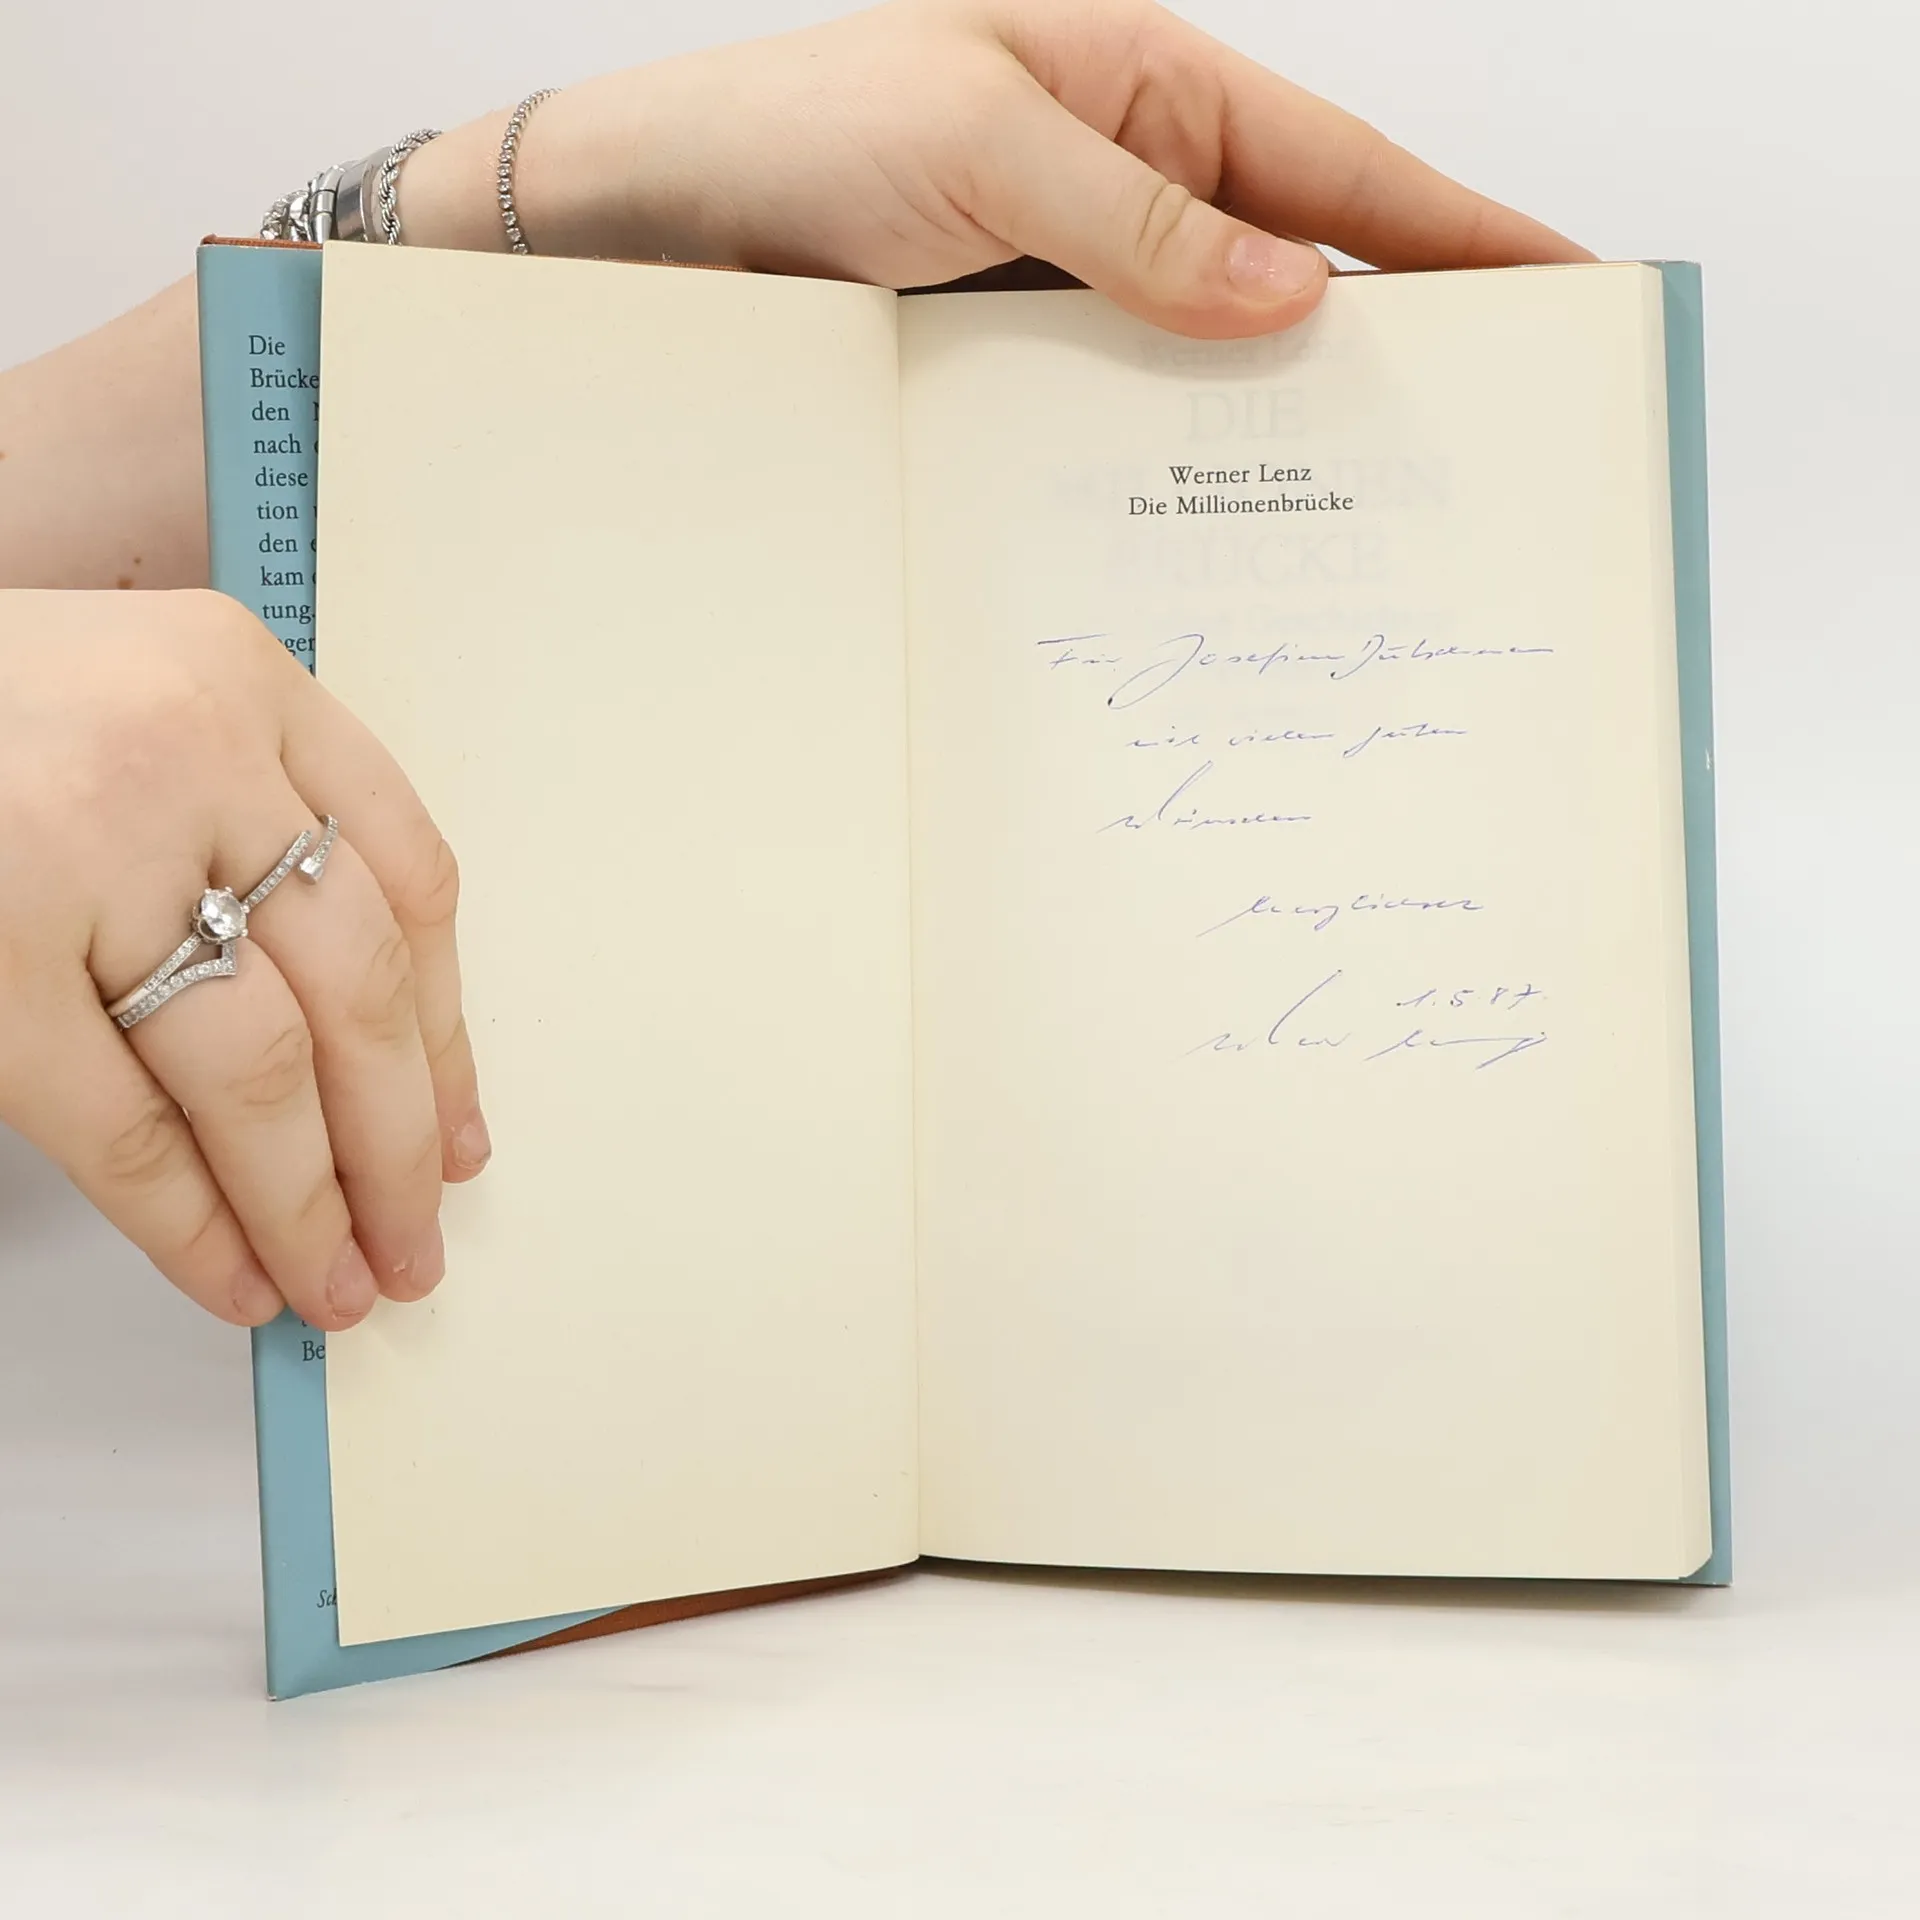 Die
Brücke
den
nach
diese
tion
den
kam
tung.
Be
Werner Lenz
Die Millionenbrücke
DIE
BRÜCKE
Für Josefine
mit vielen guten
Wünschen
herzlichst
1.5.87.
Werner Lenz